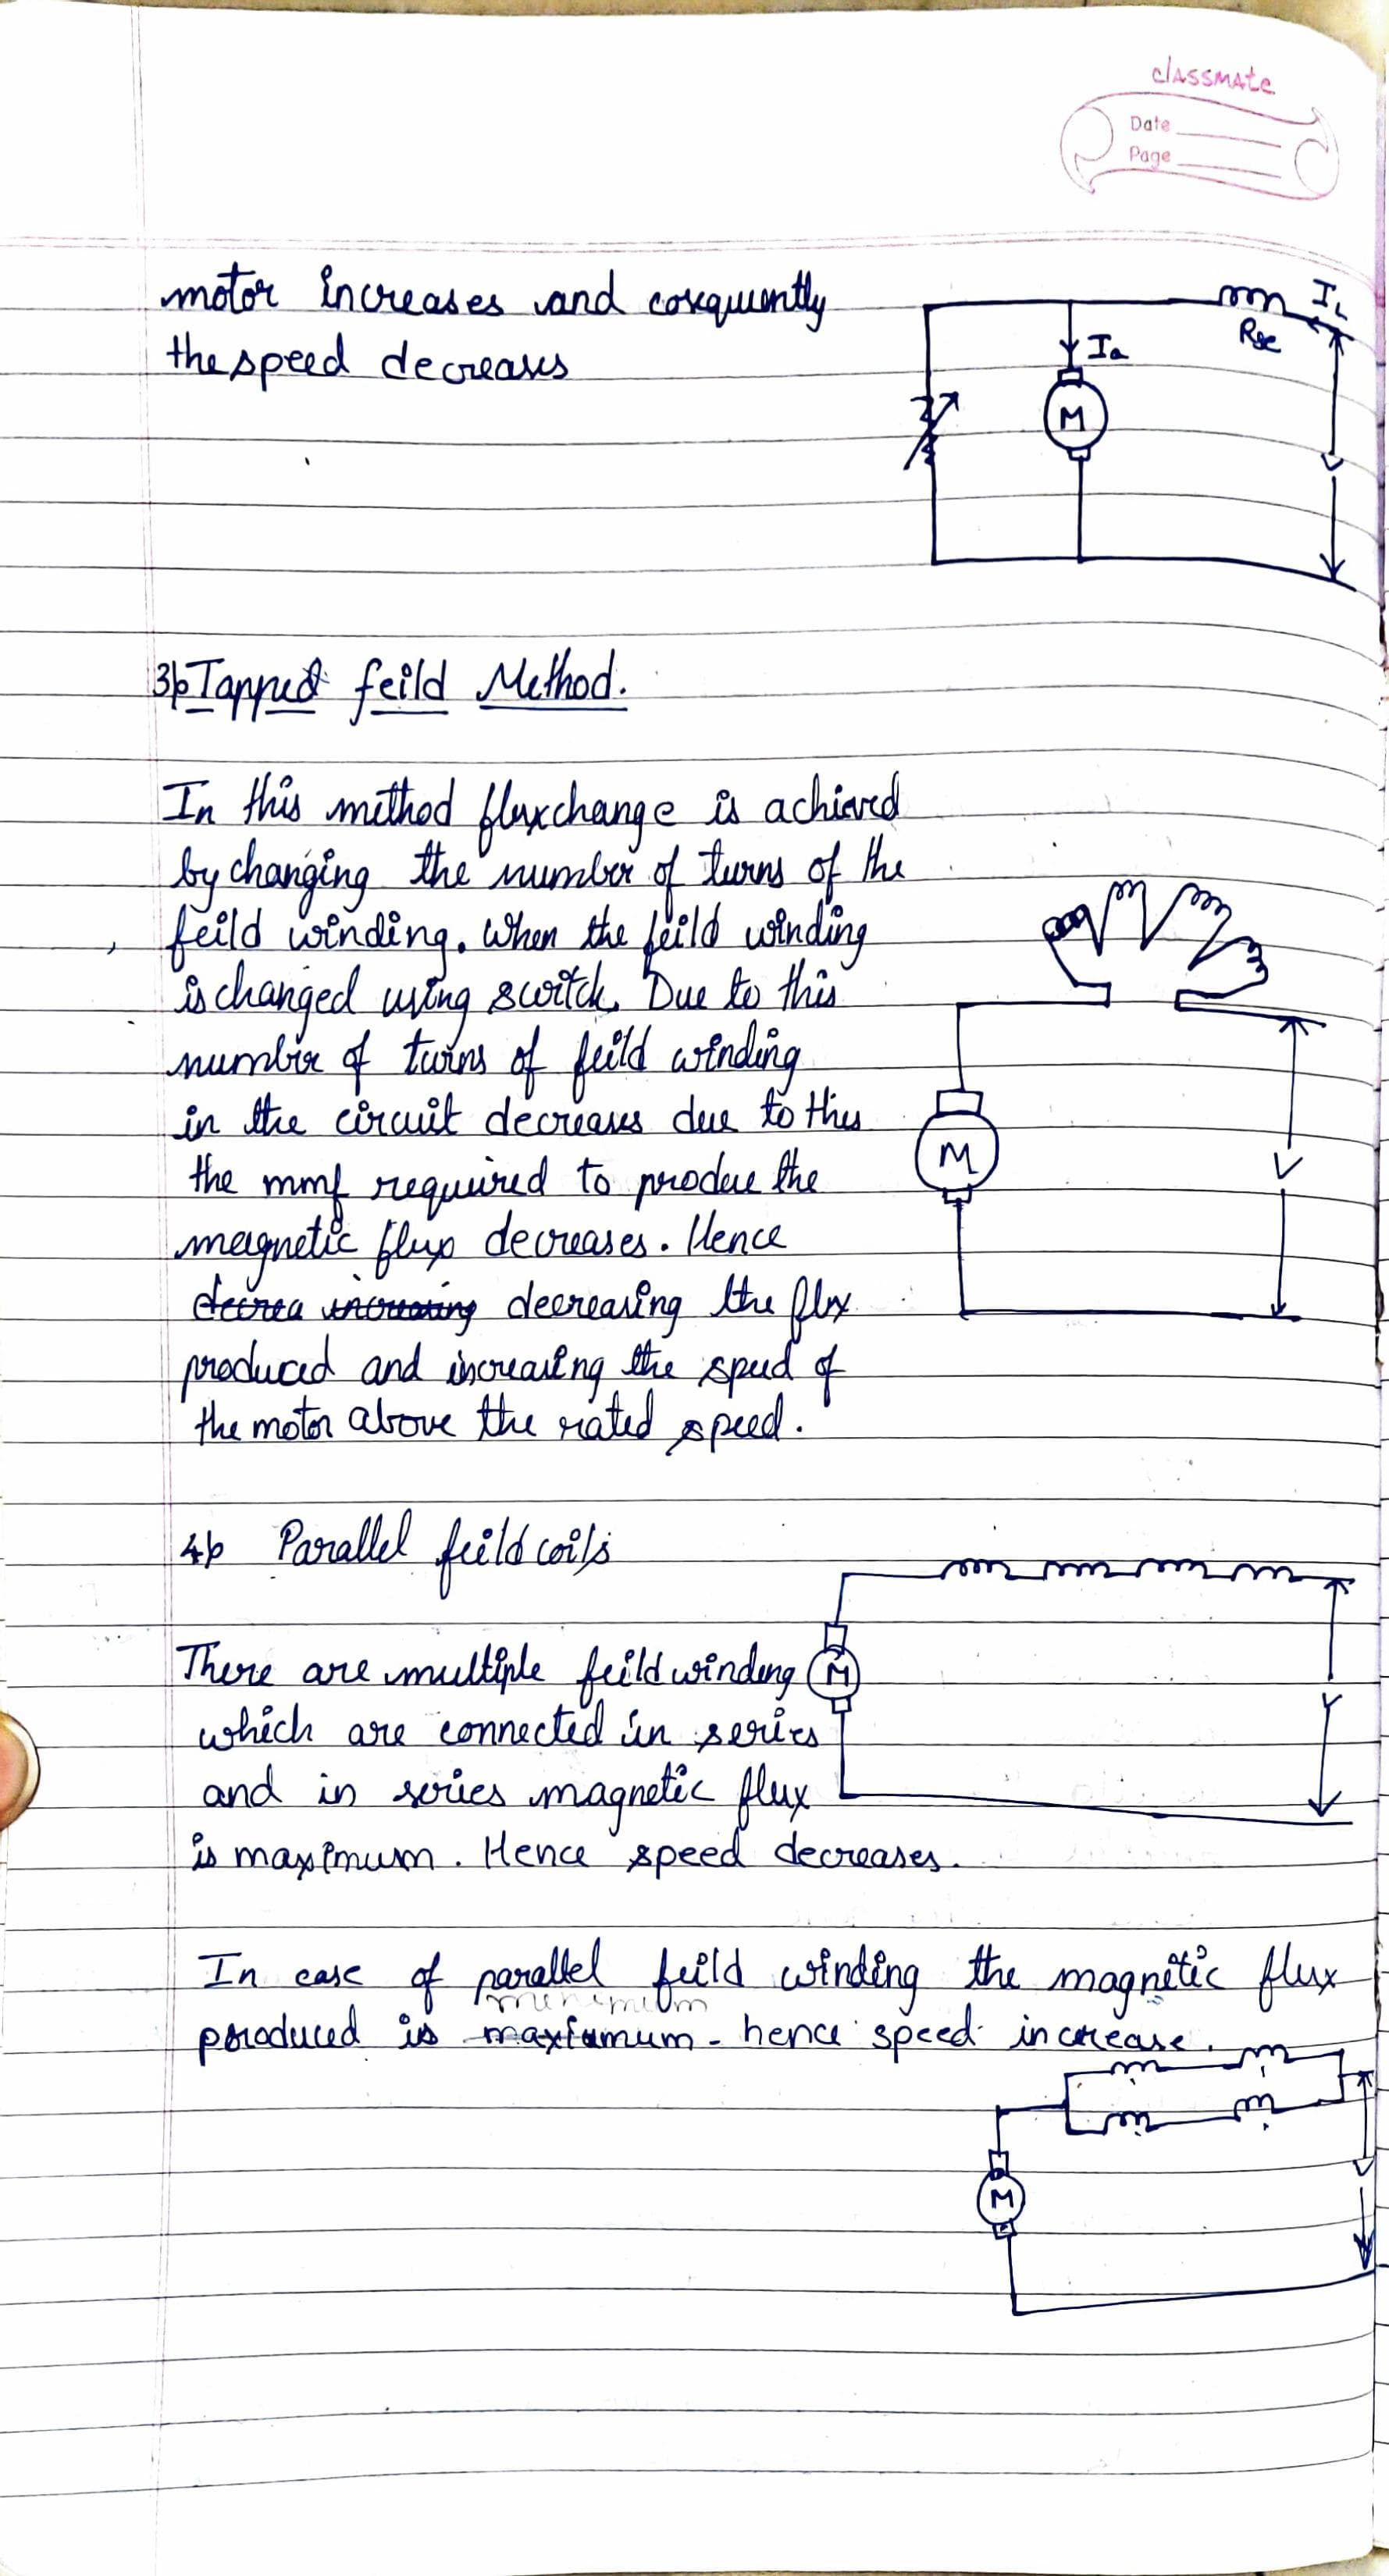 classmate
Date
Page
motor increases and cosequently
the speed decreases
IL
Rse
Ia
M
V
3) Tapped feild Method.
In this method fluxchange is achieved
by changing the number of turns of the
feild winding. When the feild winding
is changed using switch. Due to this
number of turns of feild winding
in the circuit decreases due to this
the mmf required to produe the
magnetic flux decreases. Hence
decrea increasing decreasing the flux
produced and increasing the speed of
the motor above the rated speed.
M
V
4) Parallel feild coils
There are multiple feild winding
which are connected in series
and in series magnetic flux
is maximum. Hence speed decreases.
M
V
In case of parallel feild winding the magnetic flux
minimum
produced is maximum - hence speed increase.
M
V